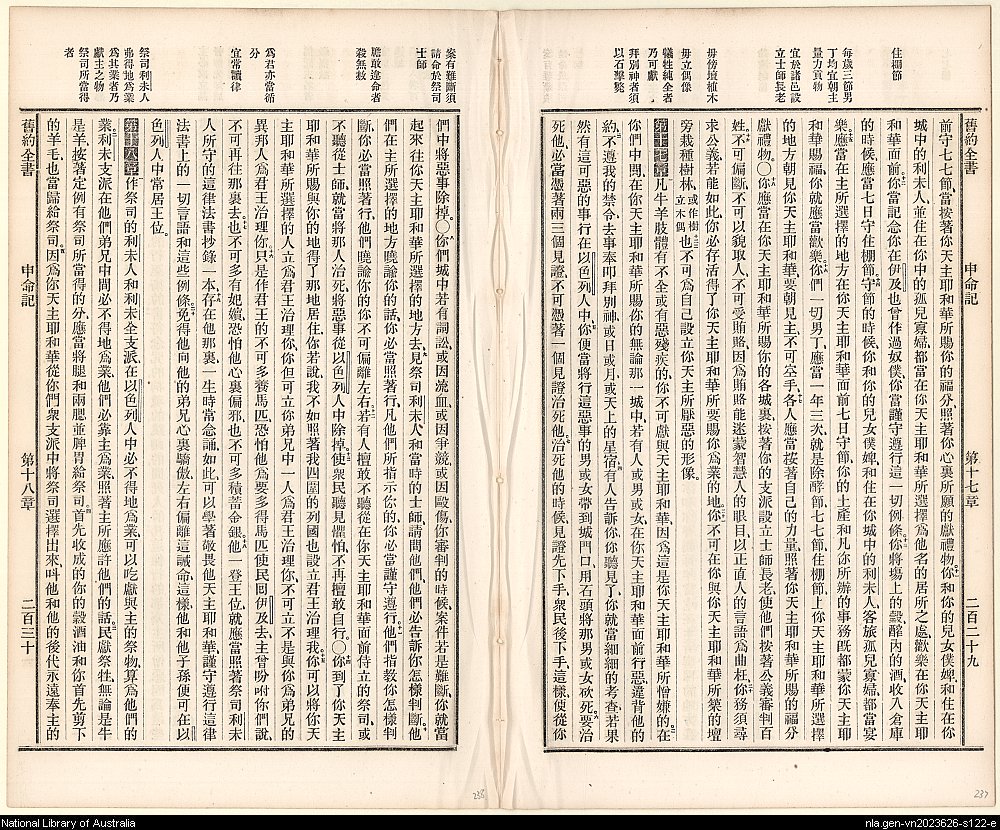 住棚節
每歲三節男
丁均宜朝主
量力貢物
宜於諸邑設
立士師長老
毋傍壇植木
毋立偶像
犧牲純全者
乃可獻
拜別神者須
以石擊斃
舊約全書 申命記 第十七章 二百二十九
前守七七節、當按著你天主耶和華所賜你的福分、照著你心裏所願的獻禮物、你和你的兒女僕婢、和住在你
城中的利未人、並住在你中的孤兒寡婦、都當在你天主耶和華所選擇為他名的居所之處、歡樂在你天主耶
和華面前、你當記念你在伊及也曾作過奴僕、你當謹守遵行這一切例條、你將場上的穀、醡內的酒、收入倉庫
的時候、應當七日守住棚節、守節的時候、你和你的兒女僕婢、和住在你城中的利未人、客旅孤兒寡婦、都當宴
樂、應當在主所選擇的地方、在你天主耶和華面前七日守節、你的土產和凡你所辦的事務、既都蒙你天主耶
和華賜福、你就應當歡樂、你們一切男丁、應當一年三次、就是除酵節、七七節、住棚節、上你天主耶和華所選擇
的地方、朝見你天主耶和華、要朝見主、不可空手、各人應當按著自己的力量、照著你天主耶和華所賜的福分
獻禮物、〇你應當在你天主耶和華所賜你的各城裏、按著你的支派設立士師長老、使他們按著公義審判百
姓、不可偏斷、不可以貌取人、不可受賄賂、因為賄賂能迷蒙智慧人的眼目、以正直人的言語為曲枉、你務須尋
求公義、若能如此、你必存活、得了你天主耶和華所要賜你為業的地、你不可在你與你天主耶和華所築的壇
旁栽種樹林、或作樹立木偶也不可為自己設立你天主所厭惡的形像。
第十七章凡牛羊肢體有不全、或有惡殘疾的、你不可獻與天主耶和華、因為這是你天主耶和華所憎嫌的、在
你們中間、在你天主耶和華所賜你的無論那一城中、若有人或男或女、在你天主耶和華面前行惡、違背他的
約、不遵我的禁令、去事奉叩拜別神、或日或月或天上的星宿、有人告訴你、你聽見了、你就當細細的考查、若果
然有這可惡的事行在以色列人中、你便當將行這惡事的男或女帶到城門口、用石頭將那男或女砍死、要治
死他、必當憑著兩三個見證、不可憑著一個見證治死他、治死他的時候、見證先下手、衆民後下手、這樣便從你
案有難斷須
請命於祭司
士師
膽敢違命者
殺無赦
為君亦當循
分
宜常讀律
祭司利未人
弗得地為業
為其業者乃
獻主之物
祭司所當得
者
們中將惡事除掉、〇你們城中若有詞訟、或因流血、或因爭競、或因毆傷、你審判的時候、案件若是難斷、你就當
起來往你天主耶和華所選擇的地方去、見祭司利未人和當時的士師、請問他們、他們必告訴你怎樣判斷、他
們在主所選擇的地方曉諭你的話、你必當照著行、凡他們所指示你的、你必當謹守遵行、他們指教你怎樣判
斷、你必當照著行、他們曉諭你的、你不可偏離左右、若有人擅敢不聽從在你天主耶和華面前侍立的祭司、或
不聽從士師、就當將那人治死、將惡事從以色列人中除掉、使衆民聽見懼怕、不再擅敢自行、〇你到了你天主
耶和華所賜與你的地、得了那地居住、你若說、我不如照著我四圍的列國、也設立君王治理我、你可以將你天
主耶和華所選擇的人立為君王治理你、你但可立你弟兄中一人為君王治理你、不可立不是與你為弟兄的
異邦人為君王治理你、只是作君王的不可多養馬匹、恐怕他為要多得馬匹使民囘伊及去、主曾吩咐你們說、
不可再往那裏去、也不可多有妃嬪、恐怕他心裏偏邪、也不可多積蓄金銀、他一登王位、就應當照著祭司利未
人所守的這律法書抄錄一本、存在他那裏、一生時常念誦、如此可以學著敬畏他天主耶和華、謹守遵行這律
法書上的一切言語和這些例條、免得他向他的弟兄心裏驕傲、左右偏離這誡命、這樣他和他子孫便可在以
色列人中常居王位。
第十八章作祭司的利未人和利未全支派、在以色列人中必不得地為業、可以吃獻與主的祭物、算為他們的
業、利未支派在他們弟兄中間必不得地為業、他們必靠主為業、照著主所應許他們的話、民獻祭牲、無論是牛
是羊、按著定例有祭司所當得的分、應當將腿和兩腮並脾胃給祭司、首先收成的你的穀酒油、和你首先剪下
的羊毛、也當歸給祭司、因為你天主耶和華從你們衆支派中將祭司選擇出來、叫他和他的後代永遠奉主的
舊約全書 申命記 第十八章 二百三十
238
237
National Library of Australia
nla.gen-vn2023626-s122-e